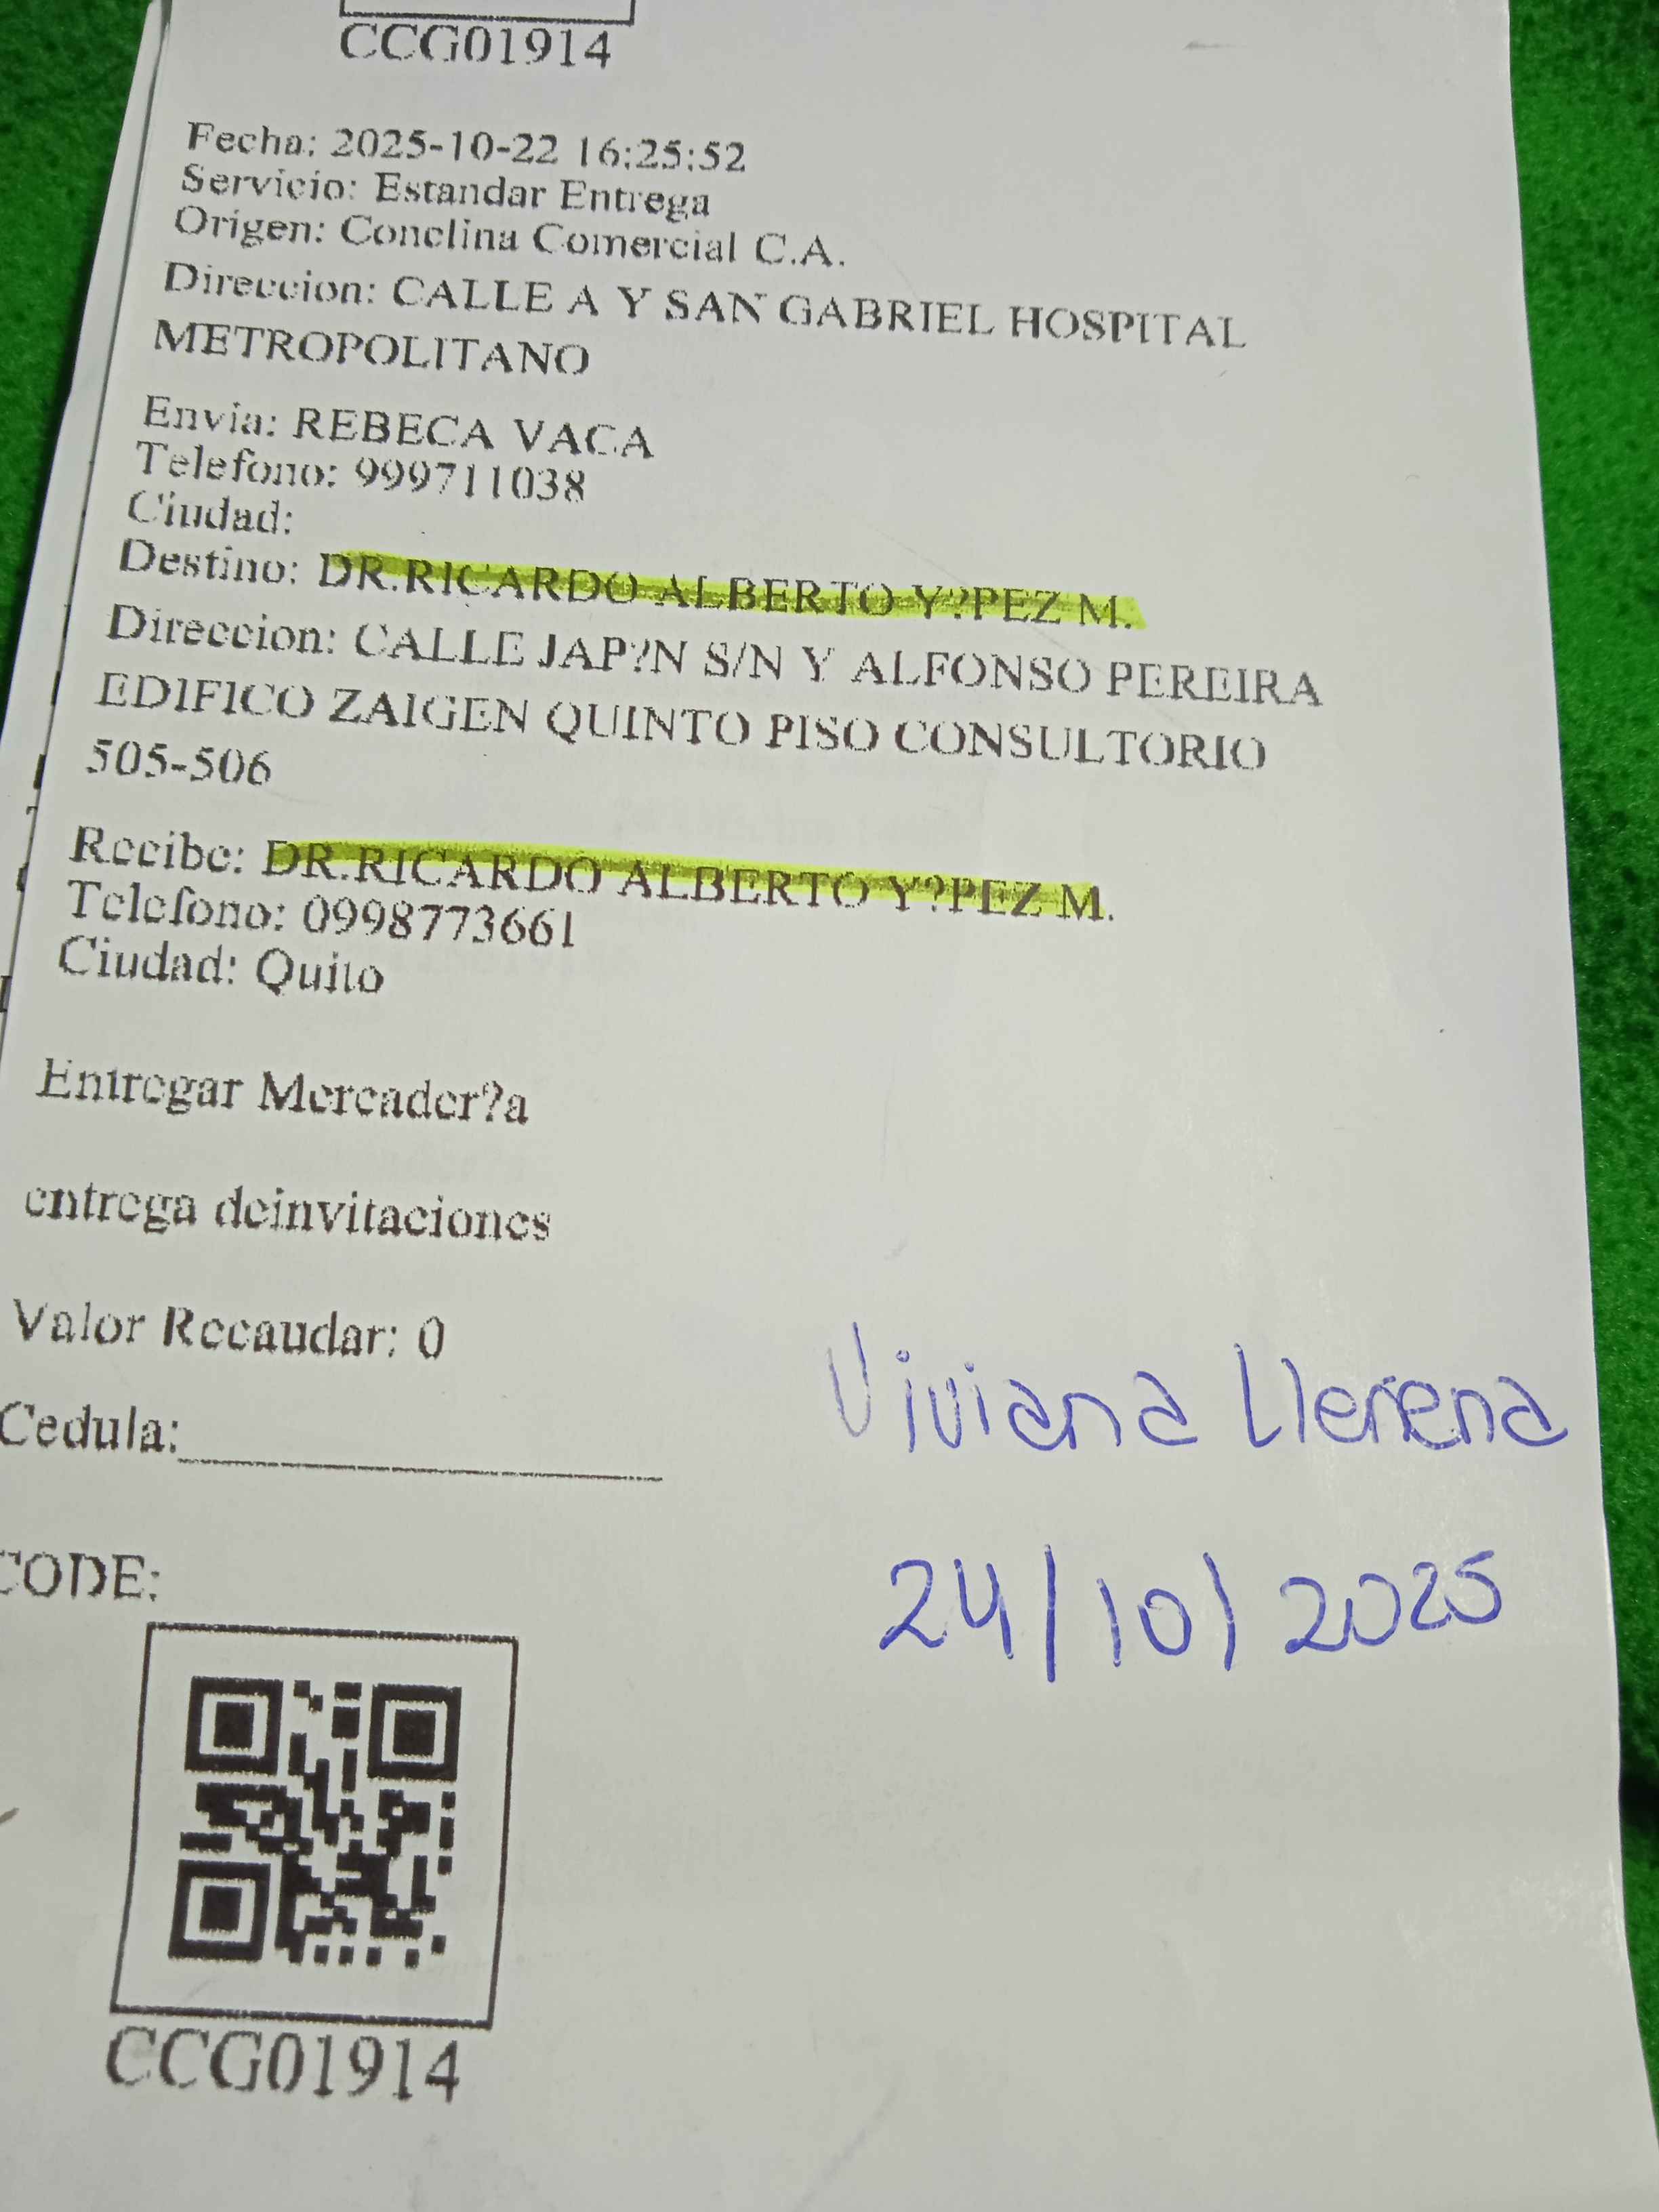 CCG01914
Fecha: 2025-10-22 16:25:52
Servicio: Estandar Entrega
Origen: Conclina Comercial C.A.
Direccion: CALLE A Y SAN GABRIEL HOSPITAL
METROPOLITANO
Envia: REBECA VACA
Telefono: 999711038
Ciudad:
Destino: DR.RICARDO ALBERTO Y?PEZ M.
Direccion: CALLE JAP?N S/N Y ALFONSO PEREIRA
EDIFICO ZAIGEN QUINTO PISO CONSULTORIO
505-506
Recibe: DR.RICARDO ALBERTO Y?PEZ M.
Telefono: 0998773661
Ciudad: Quito
Entregar Mercader?a
entrega deinvitaciones
Valor Recaudar: 0
Viviana Llerena
Cedula:
24/10/2025
CODE:
CCG01914